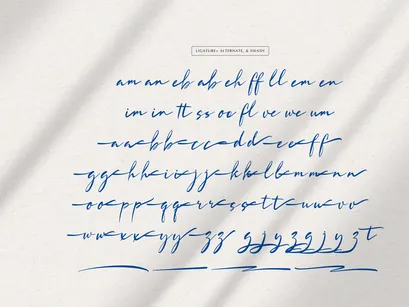 LIGATURE, ALTERNATE, & SWASH
am an eb ab eh ff ll em en
im in tt ss oo fl ve we um
a a b b c c d d e e f f
g g h h i i j j k k l l m m n n
o o p p q q r r s s t t u u v v
w w x x y y z z g j y z g j y z t